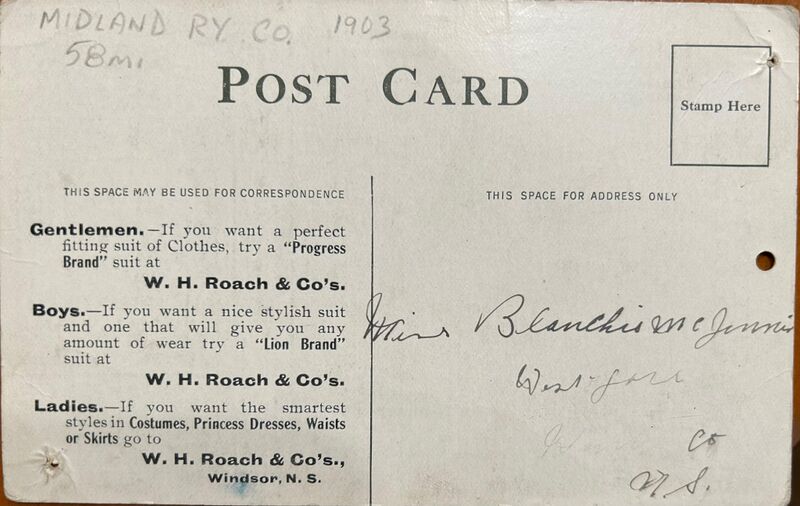 MIDLAND RY. CO. 1903
58 mi
POST CARD
Stamp Here
THIS SPACE MAY BE USED FOR CORRESPONDENCE
Gentlemen.—If you want a perfect
fitting suit of Clothes, try a "Progress
Brand" suit at
W. H. Roach & Co's.
Boys.—If you want a nice stylish suit
and one that will give you any
amount of wear try a "Lion Brand"
suit at
W. H. Roach & Co's.
Ladies.—If you want the smartest
styles in Costumes, Princess Dresses, Waists
or Skirts go to
W. H. Roach & Co's.,
Windsor, N. S.
THIS SPACE FOR ADDRESS ONLY
Miss Blanchie
West Gore
Co
N.S.